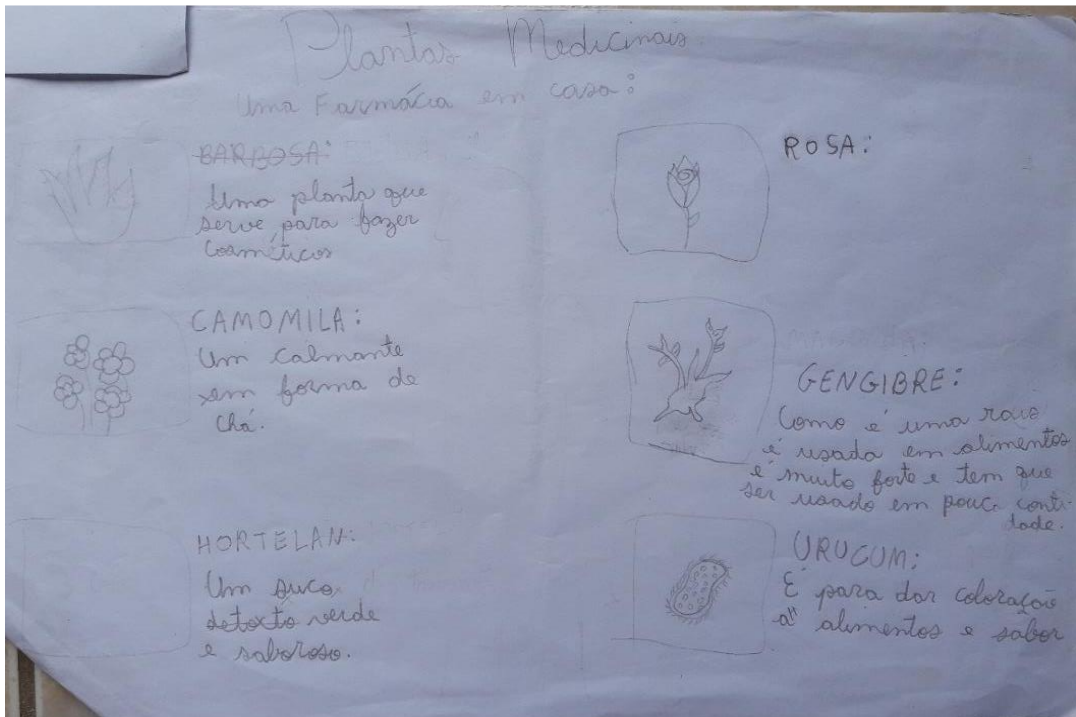 Plantas Medicinais
Uma Farmácia em casa:
BARBOSA:
Uma planta que
serve para fazer
Cosméticos
CAMOMILA:
Um Calmante
em forma de
chá.
HORTELAN:
Um suco
detoxto verde
e saboroso.
ROSA:
GENGIBRE:
Como é uma rais
é usada em alimentos
é muito forte e tem que
ser usado em pouca conti-
dade.
URUCUM:
É para dar coloração
a" alimentos e sabor